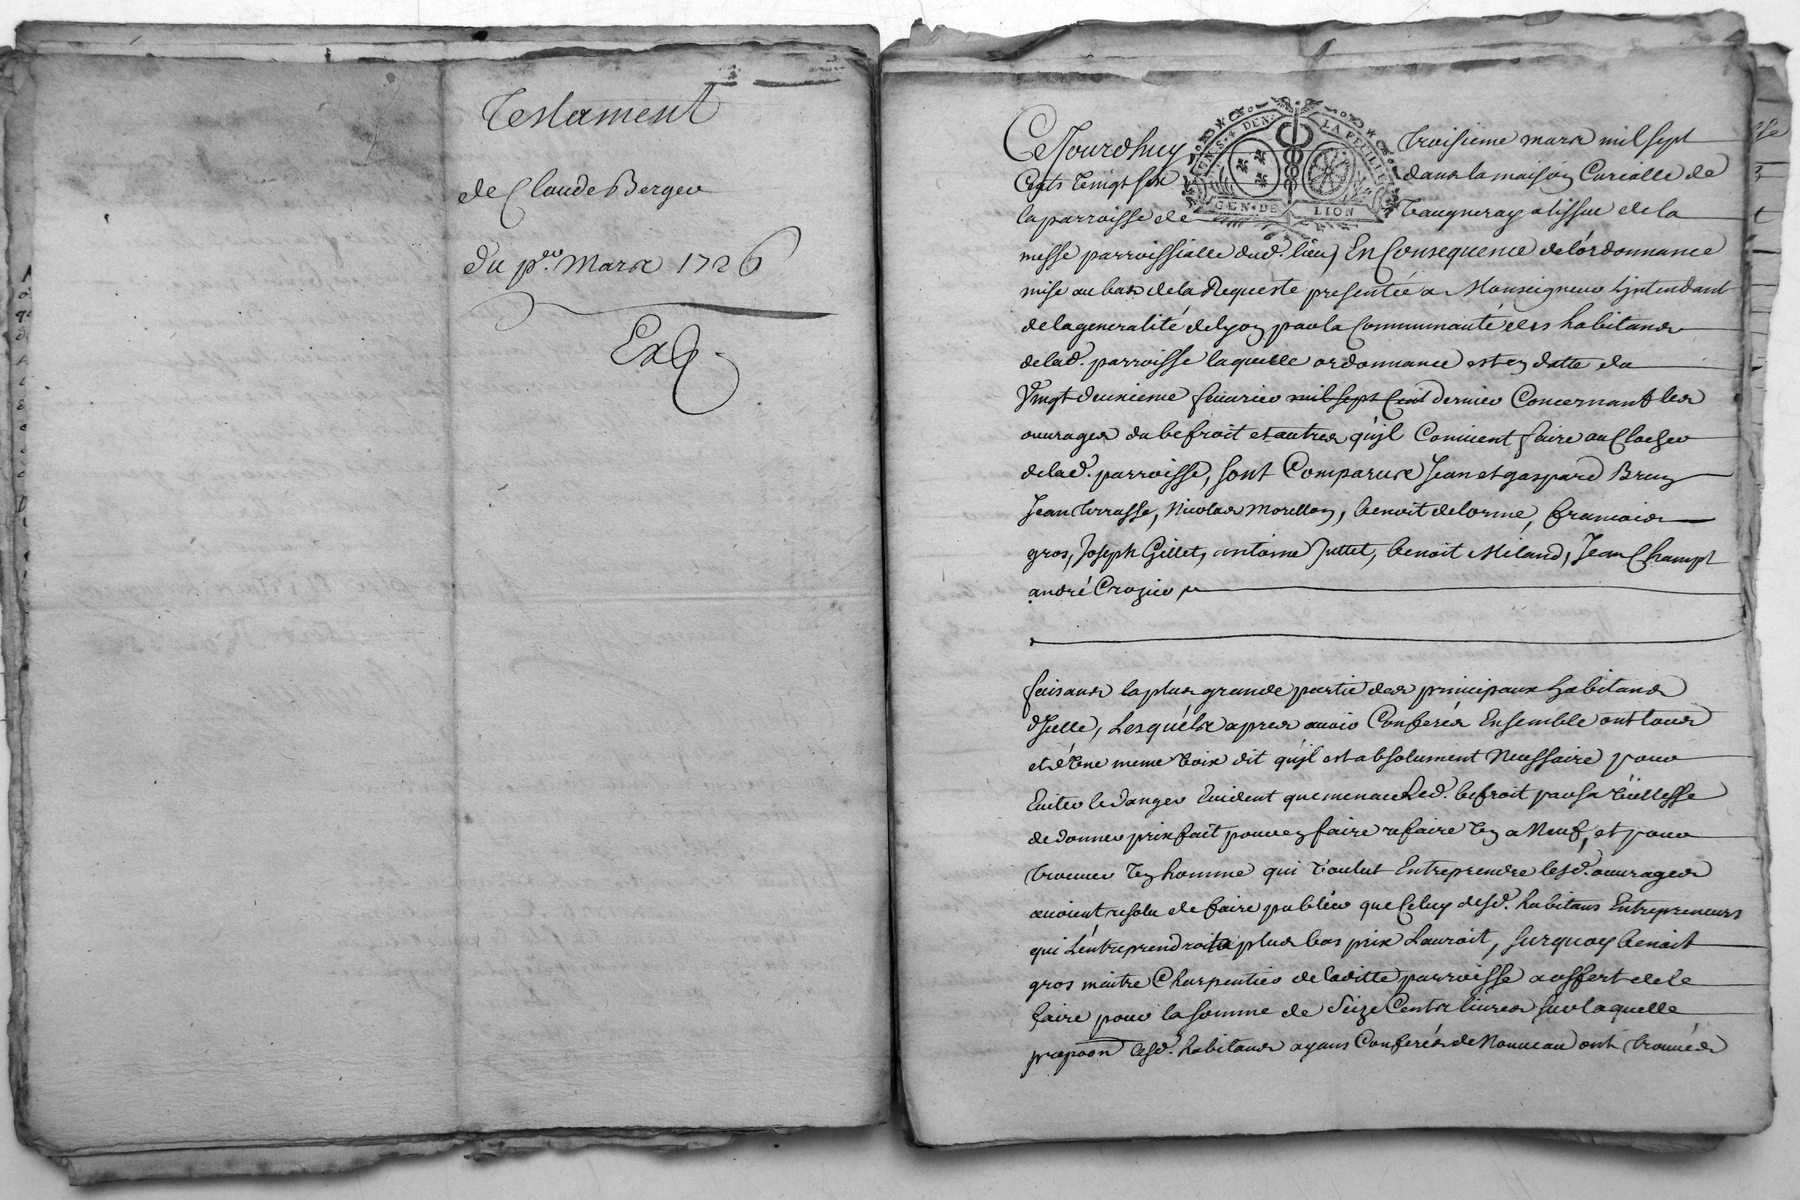 Testament
de Claude Berger
du p.er Mars 1726
Exp
Cejourdhuy troisieme mars mil sept
Cents Vingt six dans la maison Curialle de
la parroisse de Vaugneray a lissue de la
GEN. DE LION
messe parroissialle dud. lieu, En Consequence de lordonnance
mise au bas de la Requeste presentée a Monseigneur Lintendant
de la generalité de lyon par la Communauté des habitans
de lad. parroisse laquelle ordonnance est en datte du
Vingt deuxieme feuurier mil sept Cent dernier Concernant les
ouurages du befroit et autres qujl Conuient faire au Clocher
de lad. parroisse, sont Comparus Jean et gaspard Brun
Jean terrasse, Nicolas Morellon, benoit delorme, francois
gros, Joseph Gillet, antoine Juttet, benoit Miland, Jean Champt
andré Crozier
faisans la plus grande partie des principaux habitans
djcelle, Lesquels apres auoir Conferés Ensemble ont tous
et d'Vne meme Voix dit qujl est absolument Necessaire pour
Euiter le danger Euident que menace Led. befroit par sa Vieillesse
de donner prix fait pour en faire refaire Vn a Neuf, et pour
trouuer Vn homme qui Voulut Entreprendre lesd. ouurages
auoient resolu de faire publier que Celuy desd. habitans Entrepreneurs
qui L'entreprendroit a plus bas prix Lauroit, surquoy benoit
gros maitre Charpentier de laditte parroisse a offert de le
faire pour la somme de Seize Cents liures sur laquelle
propoõn lesd. habitans ayans Conferés de Nouueau ont trouués